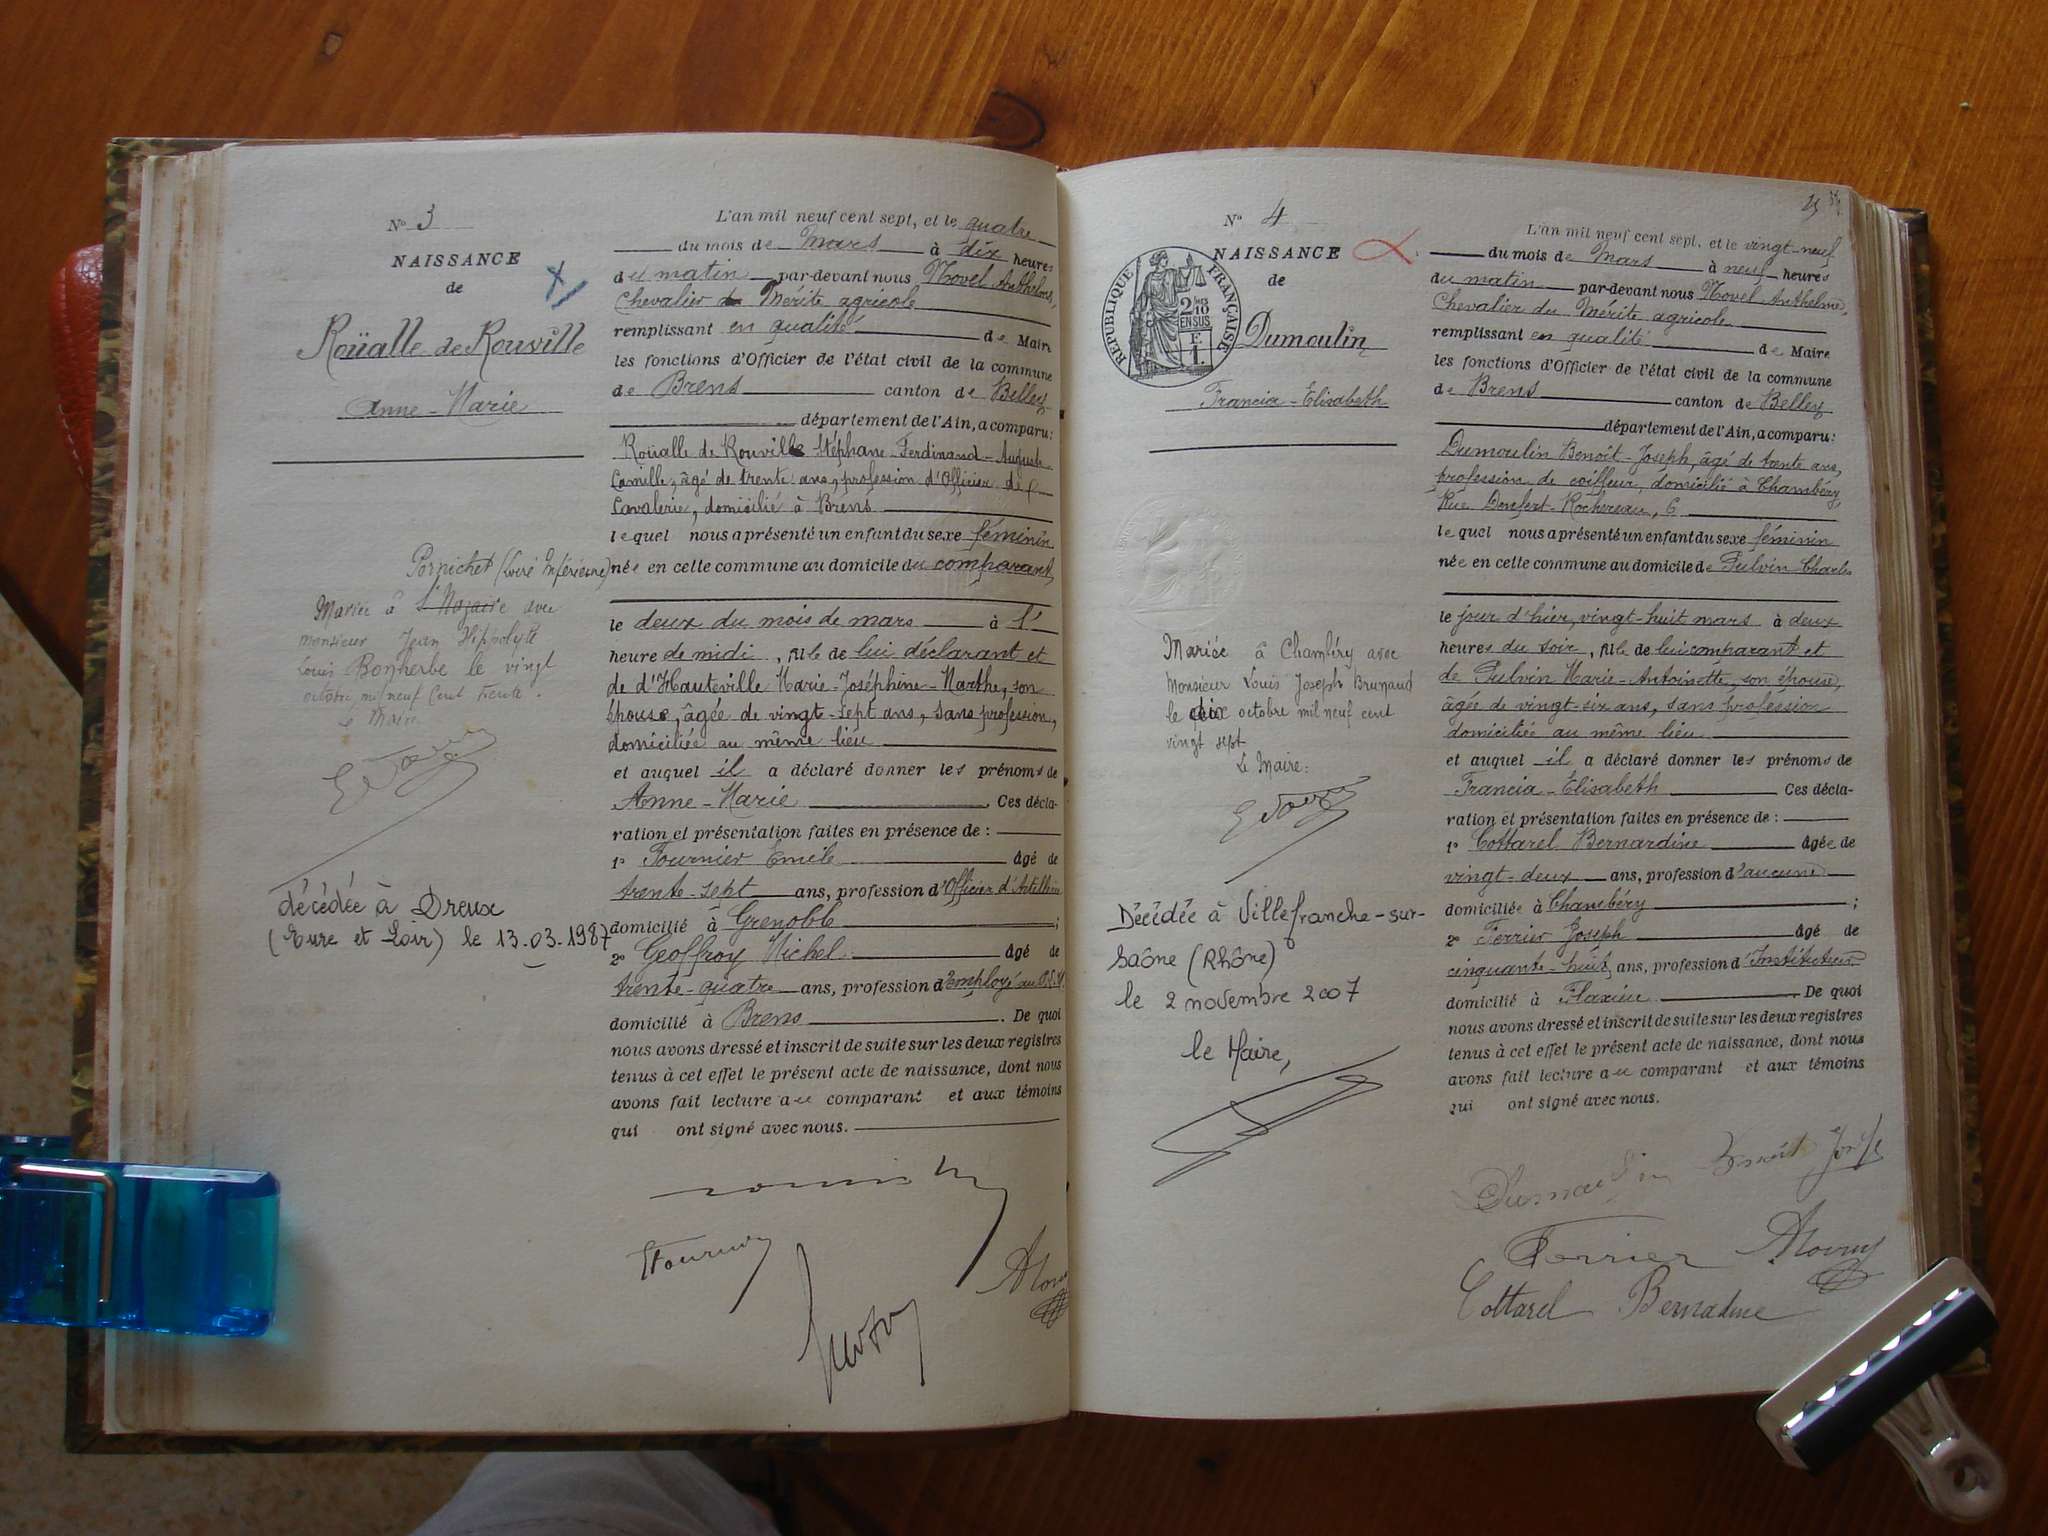 N° 3
NAISSANCE
de
Roüalle de Rouville
Anne-Marie
Pornichet (Loire Inférieure)
Mariée à St Nazaire avec
monsieur Jean Hippolyte
Louis Bonherbe le vingt
octobre mil neuf cent trente.
Le Maire
décédée à Dreux
(Eure et Loir) le 13.03.1987
L'an mil neuf cent sept, et le quatre
du mois de Mars à dix heures
du matin par-devant nous Novel Anthelme,
Chevalier du Mérite agricole
remplissant en qualité de Maire
les fonctions d'Officier de l'état civil de la commune
de Brens canton de Belley
département de l'Ain, a comparu:
Roüalle de Rouville Stéphane-Ferdinand-Auguste
Camille, âgé de trente ans, profession d'Officier de
Cavalerie, domicilié à Brens
lequel nous a présenté un enfant du sexe féminin
née en cette commune au domicile du comparant,
le deux du mois de mars à l'
heure de midi, fille de lui déclarant et
de d'Hauteville Marie-Joséphine-Marthe, son
épouse, âgée de vingt-sept ans, sans profession,
domiciliée au même lieu
et auquel il a déclaré donner les prénoms de
Anne-Marie. Ces décla-
ration et présentation faites en présence de :
1° Fournier Emile âgé de
trente-sept ans, profession d'Officier d'Artillerie
domicilié à Grenoble ;
2° Geoffroy Michel âgé de
trente-quatre ans, profession d'Employé au P.L.M.
domicilié à Brens. De quoi
nous avons dressé et inscrit de suite sur les deux registres
tenus à cet effet le présent acte de naissance, dont nous
avons fait lecture au comparant et aux témoins
qui ont signé avec nous.
Fournier
N° 4
NAISSANCE
de
RÉPUBLIQUE FRANÇAISE
2/10
EN SUS
Dumoulin
Francia-Elisabeth
Mariée à Chambéry avec
Monsieur Louis Joseph Brunaud
le dix octobre mil neuf cent
vingt sept
Le Maire:
Décédée à Villefranche-sur-
Saône (Rhône)
le 2 novembre 2007
le Maire,
L'an mil neuf cent sept, et le vingt-neuf
du mois de Mars à neuf heures
du matin par-devant nous Novel Anthelme,
Chevalier du Mérite agricole
remplissant en qualité de Maire
les fonctions d'Officier de l'état civil de la commune
de Brens canton de Belley
département de l'Ain, a comparu:
Dumoulin Benoît-Joseph, âgé de trente ans,
profession de coiffeur, domicilié à Chambéry,
Rue Denfert-Rochereau, 6
lequel nous a présenté un enfant du sexe féminin
née en cette commune au domicile de Pulvin Charles
le jour d'hier, vingt-huit mars à deux
heures du soir, fille de lui comparant et
de Pulvin Marie-Antoinette, son épouse,
âgée de vingt-six ans, sans profession
domiciliée au même lieu
et auquel il a déclaré donner les prénoms de
Francia-Elisabeth Ces décla-
ration et présentation faites en présence de :
1° Cottarel Bernardine âgée de
vingt-deux ans, profession d'aucune
domiciliée à Chambéry ;
2° Ferrier Joseph âgé de
cinquante-huit ans, profession d'Instituteur
domicilié à Flaxieu. De quoi
nous avons dressé et inscrit de suite sur les deux registres
tenus à cet effet le présent acte de naissance, dont nous
avons fait lecture au comparant et aux témoins
qui ont signé avec nous.
Dumoulin Benoît Josph
Ferrier ANovel
Cottarel Bernadine